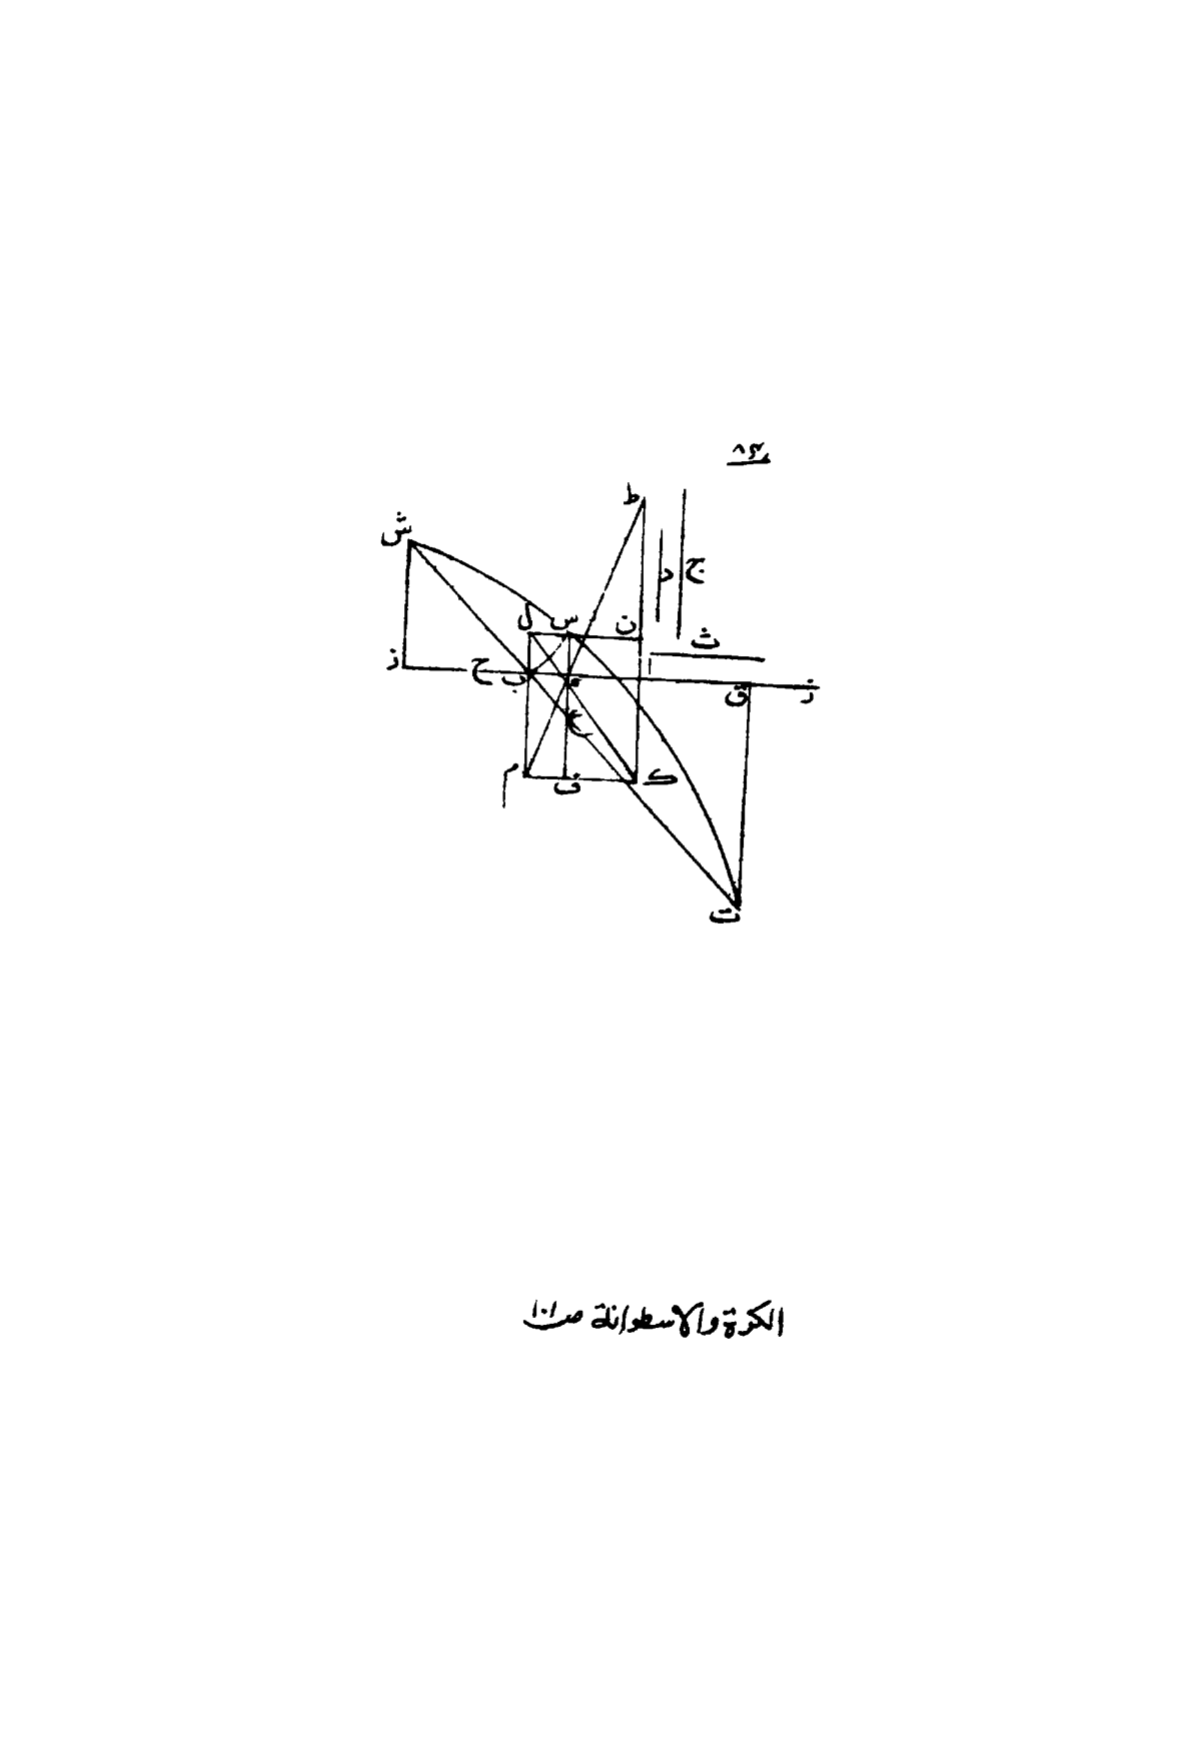 ط
ش
ج
د
ل س ن
ث
ز ح ب ه ق ز
ع
م ف ك
ت
الكرة والاسطوانة ص١٠١